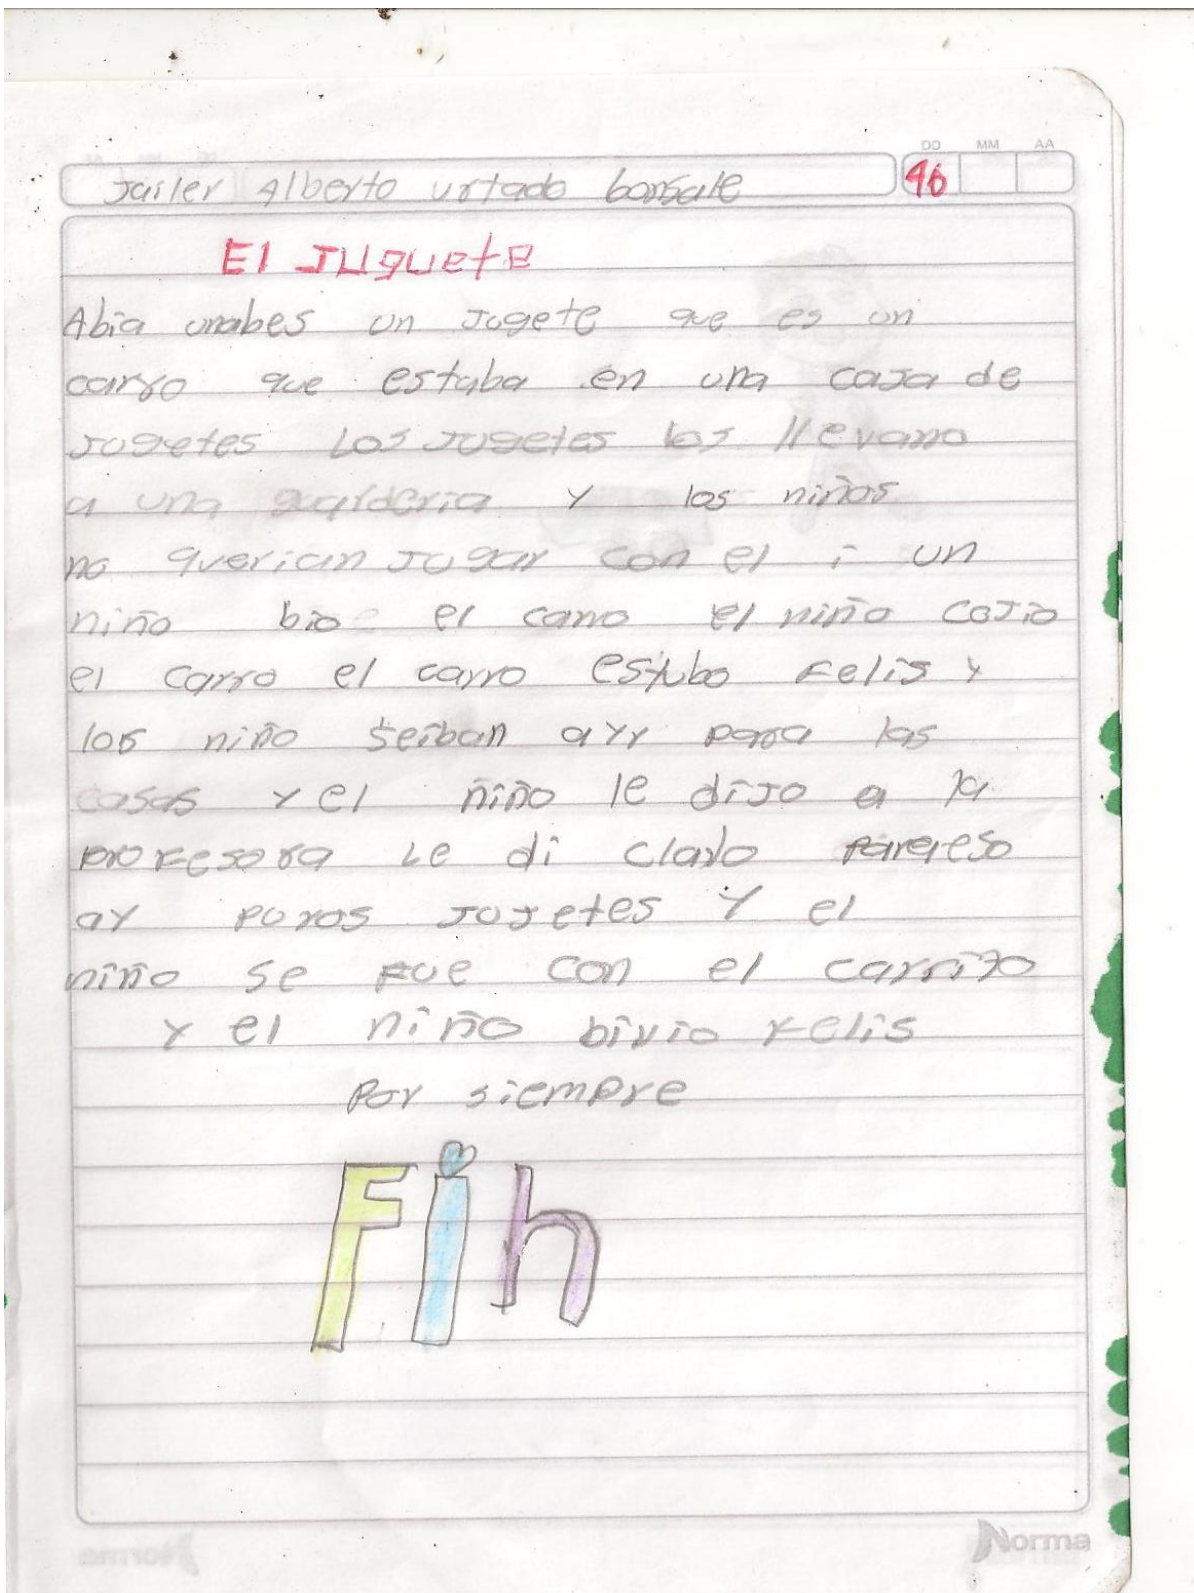 DD MM AA
Jailer Alberto urtado bonsale 46
El JUguetE
Abia unabes un Jugete que es un
carro que estaba en una caja de
Jugetes Los Jugetes los llevaro
a una guarderia y los niños
no querian Jugar con el i un
niño bio el carro el niño cojio
el carro el carro estubo Felis y
los niño seiban a yr para las
casas y el niño le dijo a la
profesora Le di claro para eso
ay puros Jujetes Y el
niño se Fue con el carrito
y el niño bivio Felis
Por siempre
Fin
Norma